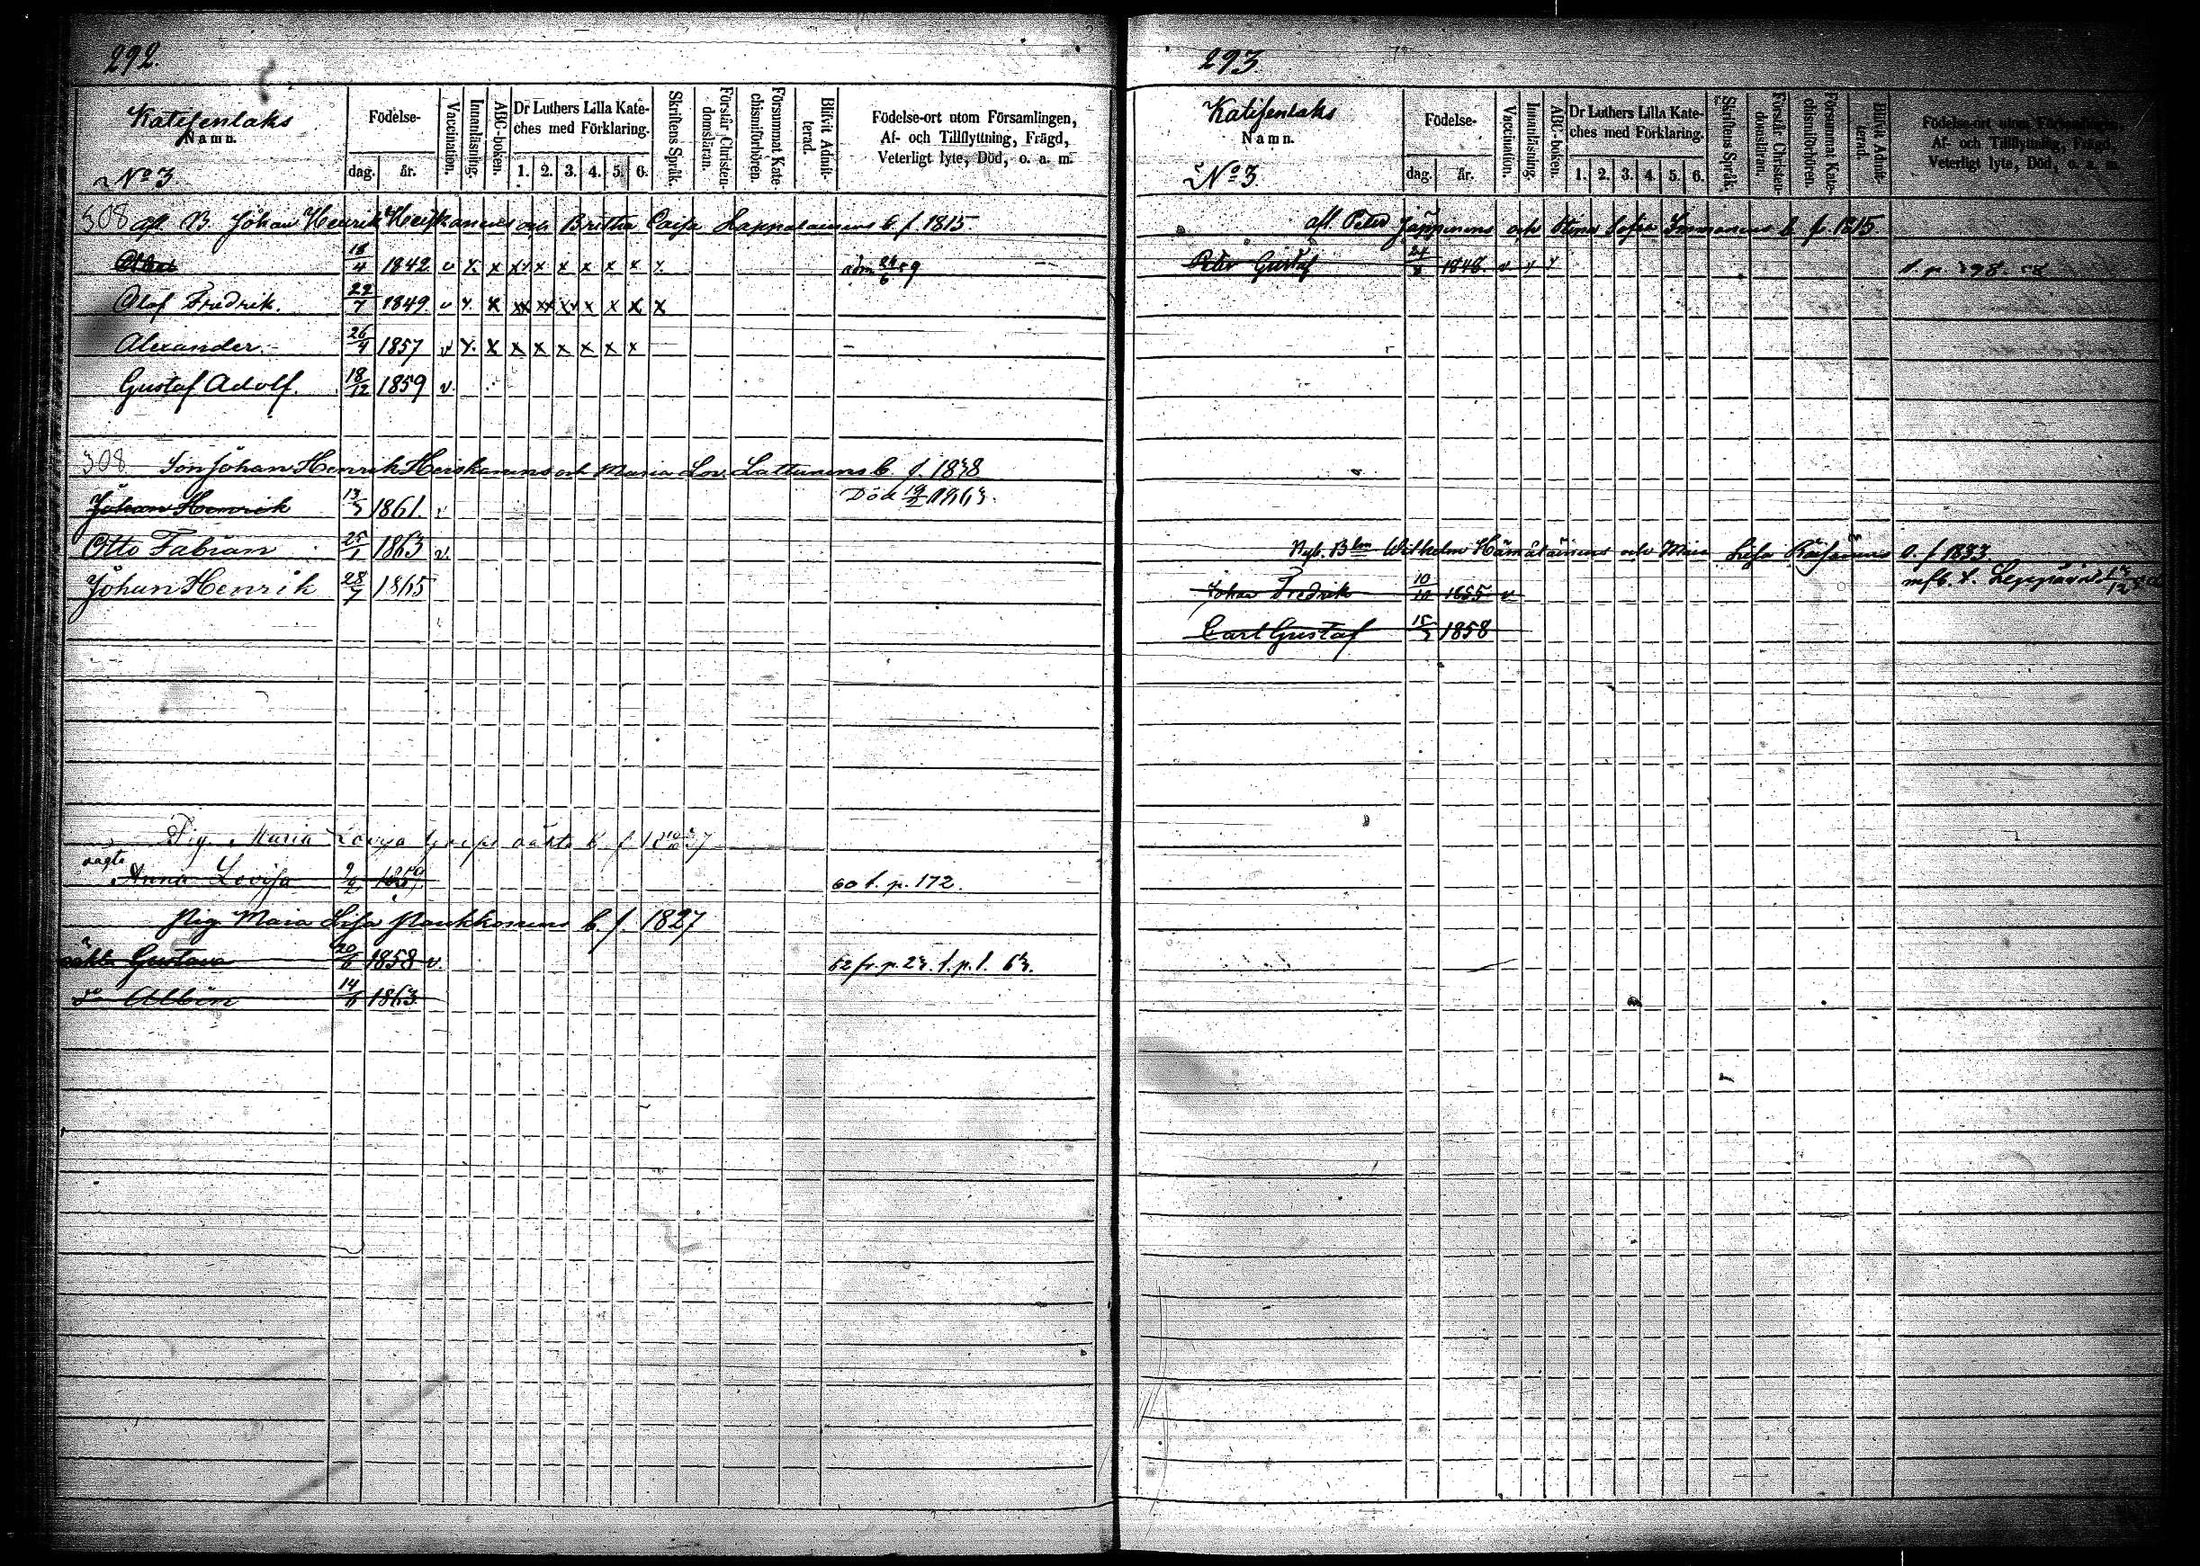 292.
Katisenlaks
Namn.
No 3
Födelse-
dag. år.
Vaccination.
Innanläsning.
ABC-boken.
Dr Luthers Lilla Kate-
ches med Förklaring.
1. 2. 3. 4. 5. 6.
Skriftens Språk.
Förstår Christen-
domsläran.
Försummat Kate-
chismiförhören.
Blifvit Admit-
terad.
Födelse-ort utom Församlingen,
Af- och Tillflyttning, Frägd,
Veterligt lyte, Död, o. a. m.
308 afl. B. Johan Henrik Heiskanens och Britha Caisa b. f. 1815
18/4 1842 v x x x x x x x x x
Olof Fredrik. 22/7 1849 v x x xx xx xx x x x x
Alexander. 26/4 1857 v x x x x x x x x
Gustaf Adolf. 18/12 1859 v.
308 Son Johan Henrik Heiskanens och Maria Lov. Lattunens b. f. 1838
Johan Henrik 1861 v Död
Otto Fabian 25/1 1863 v.
Johan Henrik 28/7 1865
Pig. Maria Lovisa b. f.
Anna Lovisa 1859 60 t. p. 172.
Pig Maia Lisa b. f. 1827
Gustava 20/6 1858 v. 62 fr. p. 23. t. p. 1. 63.
do Albin 14/6 1863
293
Katisenlaks
Namn.
No 3.
Födelse-
dag. år.
Vaccination.
Innanläsning.
ABC-boken.
Dr Luthers Lilla Kate-
ches med Förklaring.
1. 2. 3. 4. 5. 6.
Skriftens Språk.
Förstår Christen-
domsläran.
Försummat Kate-
chismiförhören.
Blifvit Admit-
terad.
Födelse-ort utom Församlingen,
Af- och Tillflyttning, Frägd,
Veterligt lyte, Död, o. a. m.
afl. Peter Jäppinens och Stina Sofia Immonens b. f. 1815
Peter Gustaf 1848 v
Wilhelm Hämäläinens och Maia Lisa Räisänens b. f. 1833
Johan Fredrik 10/10 1855 v
Carl Gustaf 1858